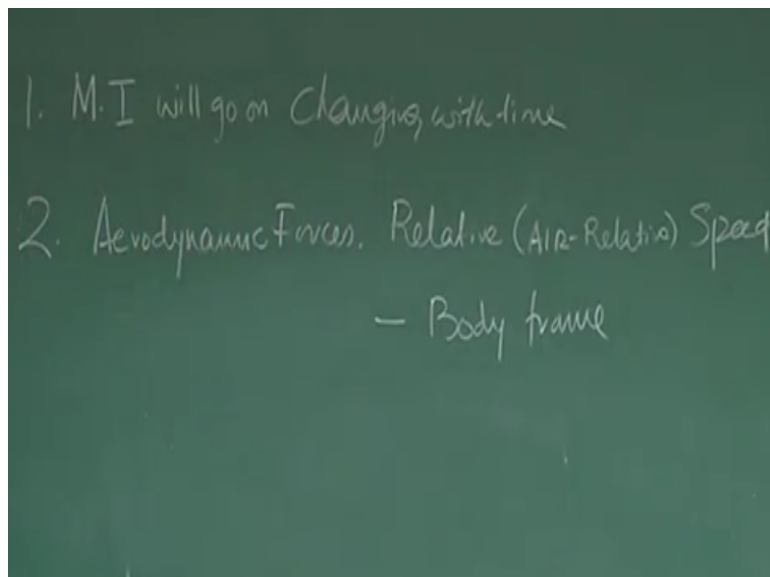 1. M.I will go on Changing with time
2. Aerodynamic Forces. Relative (AIR-Relative) Speed
– Body frame